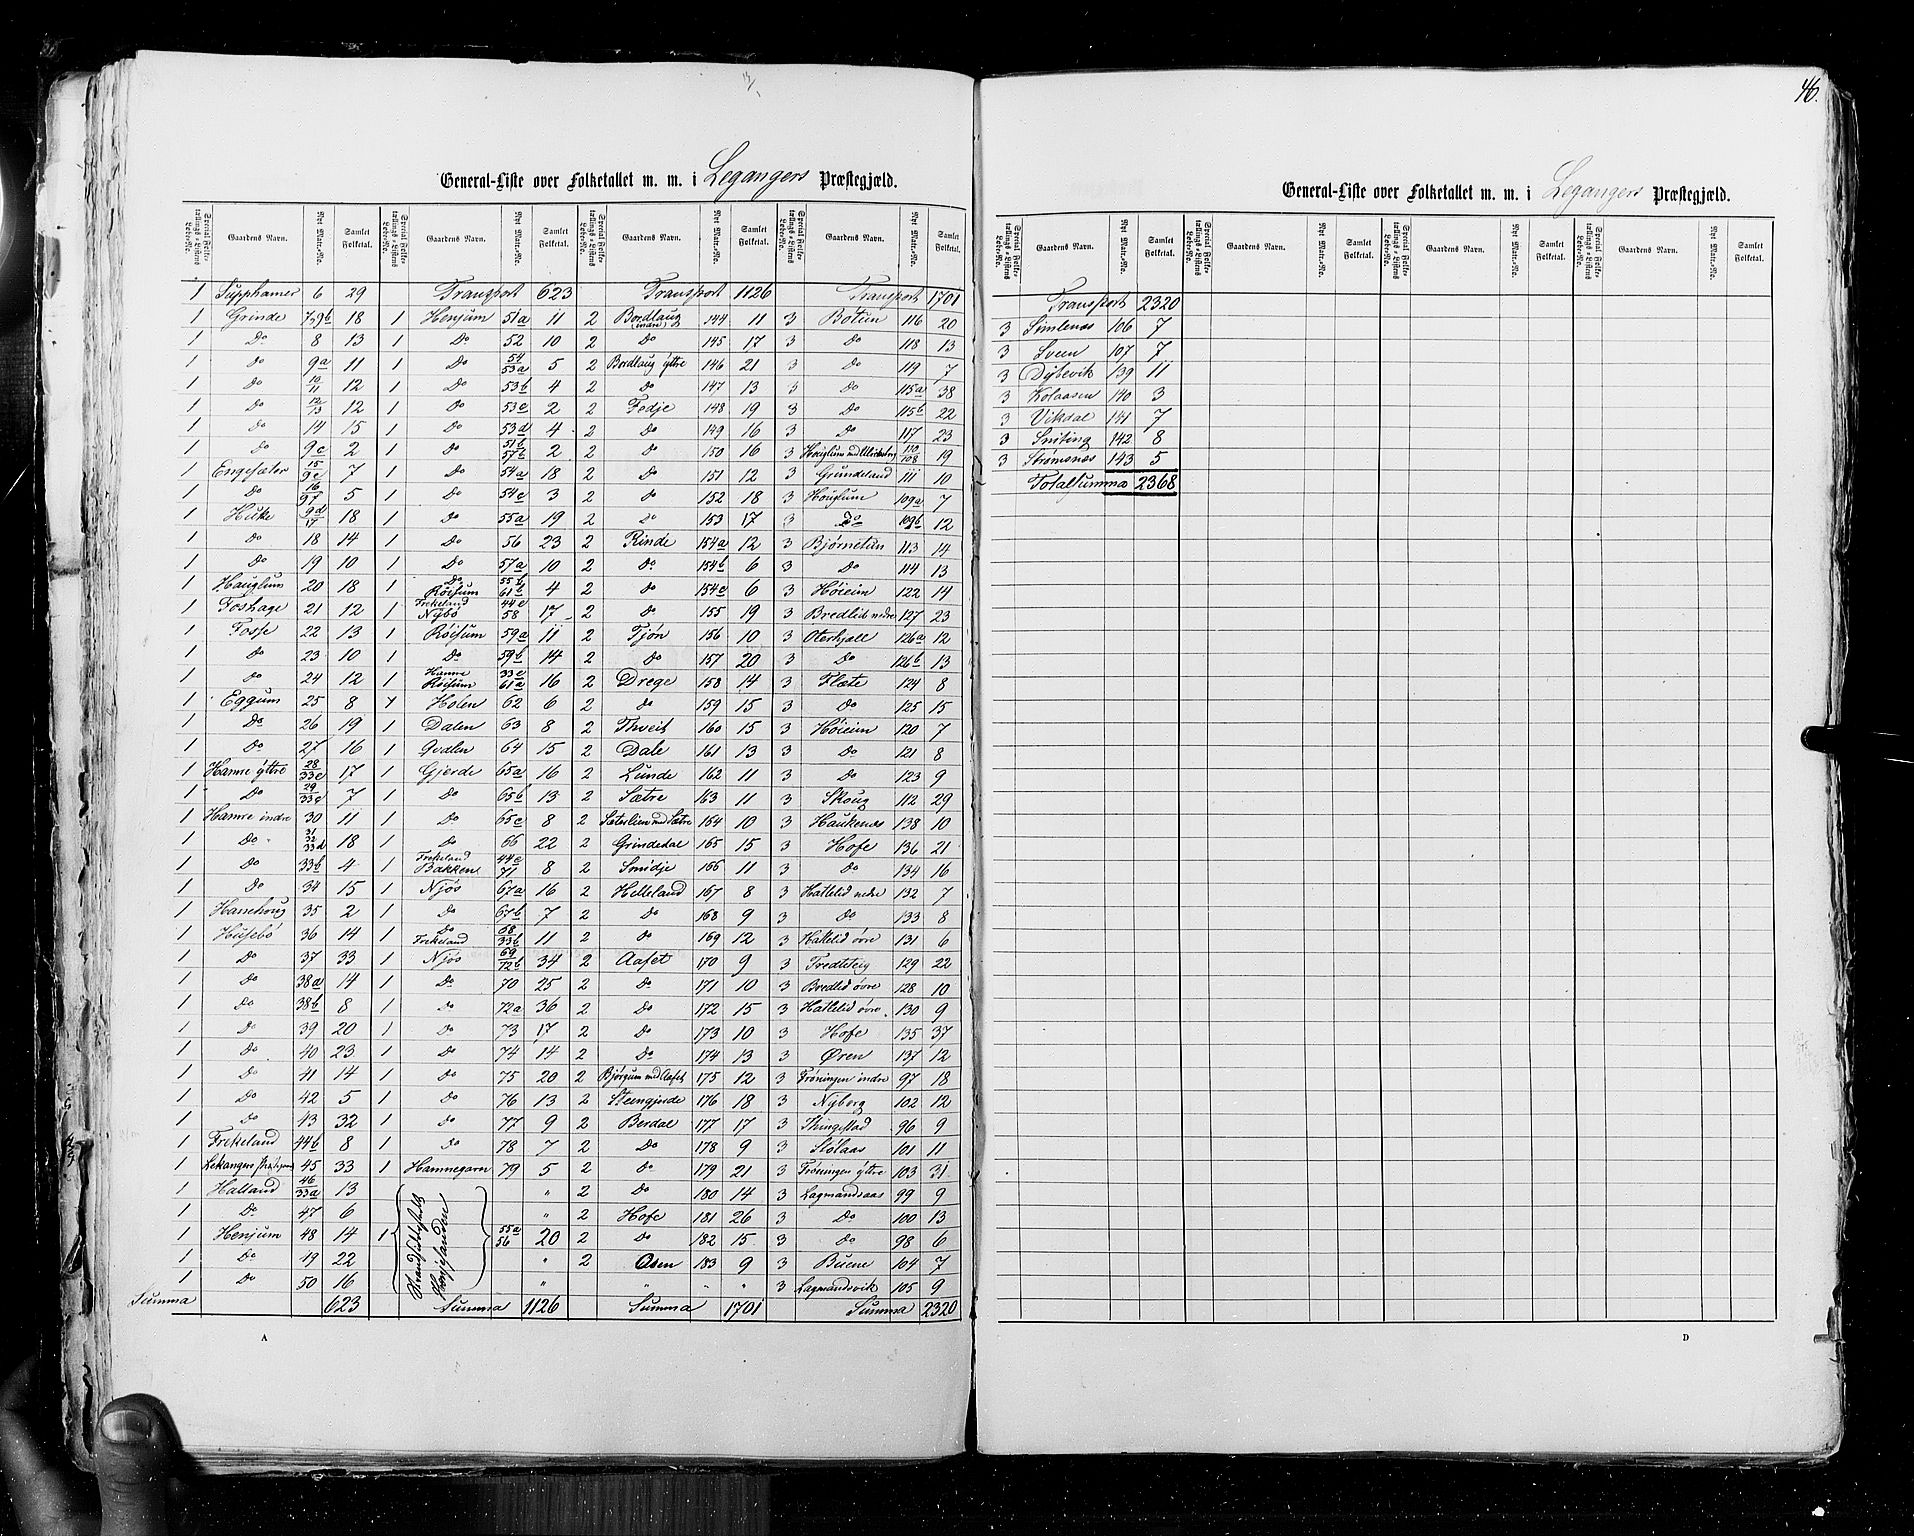 46.
General-Liste over Folketallet m. m. i Legangers Præstegjæld.
Special Folketællings-Listens Løbe-No. Gaardens Navn. Nyt Matr.-No. Samlet Folketal. Special Folketællings-Listens Løbe-No. Gaardens Navn. Nyt Matr.-No. Samlet Folketal. Special Folketællings-Listens Løbe-No. Gaardens Navn. Nyt Matr.-No. Samlet Folketal. Special Folketællings-Listens Løbe-No. Gaardens Navn. Nyt Matr.-No. Samlet Folketal.
1 Supphamer 6 29 Transport 623 Transport 1126 Transport 1701
1 Grinde 7,9b 18 1 Henjum 51a 11 2 Bordlaug (indre) 144 11 3 Bøtun 116 20
1 Do 8 13 1 Do 52 10 2 Do 145 17 3 Do 118 13
1 Do 9a 11 1 Do 54 53a 5 2 Bordlaug ÿttre 146 21 3 Do 119 7
1 Do 10 11 12 1 Do 53b 4 2 Do 147 13 3 Do 115a 38
1 Do 12 13 12 1 Do 53c 2 2 Fedje 148 19 3 Do 115b 22
1 Do 14 15 1 Do 53d 4 2 Do 149 16 3 Do 117 23
1 Do 9c 2 1 Do 51b 57b 2 2 Do 150 16 3 110 108 19
1 Engesæter 15 9e 7 1 Do 54a 18 2 Do 151 12 3 Grundeland 111 10
1 Do 16 9f 5 1 Do 54c 3 2 Do 152 18 3 Houglum 109a 7
1 Huke 9d 17 18 1 Do 55a 19 2 Do 153 17 3 Do 109b 12
1 Do 18 14 1 Do 56 23 2 Rinde 154a 12 3 Bjørnetun 113 14
1 Do 19 10 1 Do 57a 10 2 Do 154b 6 3 Do 114 13
1 Hauglum 20 18 1 Do Røisum 55b 61b 4 2 Do 154c 6 3 Høieim 122 14
1 Foshage 21 12 1 Frekeland Nÿbø 44c 58 17 2 Do 155 19 3 Bredlid nedre 127 23
1 Fosse 22 13 1 Røisum 59a 11 2 Tjøn 156 10 3 Oterhjall 126a 12
1 Do 23 10 1 Do 59b 14 2 Do 157 20 3 Do 126b 13
1 Do 24 12 1 Hamre Røisum 33c 61a 16 2 Drege 158 14 3 Flæte 124 8
1 Eggum 25 8 1 Holen 62 6 2 Do 159 15 3 Do 125 15
1 Do 26 19 1 Dalen 63 8 2 Thveit 160 15 3 Høieim 120 7
1 Do 27 16 1 Qvalen 64 15 2 Dale 161 13 3 Do 121 8
1 Hamre ÿttre 28 33e 17 1 Gjerde 65a 16 2 Lunde 162 11 3 Do 123 9
1 Do 29 33c 7 1 Do 65b 13 2 Sætre 163 11 3 Skoug 112 29
1 Hamre indre 30 11 1 Do 65c 8 2 Sæterlien med Sætre 164 10 3 Haukenæs 138 10
1 Do 31 32 33d 18 1 Do 66 22 2 Grindedal 165 15 3 Hofe 136 21
1 Do 33b 4 1 Frekeland Bakken 44c 71 8 2 Smidje 166 11 3 Do 134 16
1 Do 34 15 1 Njøs 67a 16 2 Helleland 167 8 3 Hatlelid nedre 132 7
1 Hanehoug 35 2 1 Do 67b 7 2 Do 168 9 3 Do 133 8
1 Husebø 36 14 1 Do Frekeland 68 33b 11 2 Do 169 12 3 Hatlelid øvre 131 6
1 Do 37 33 1 Njøs 69 72b 34 2 Aafet 170 9 3 Tredteteig 129 22
1 Do 38a 14 1 Do 70 25 2 Do 171 10 3 Bredlid øvre 128 10
1 Do 38b 8 1 Do 72a 36 2 Do 172 15 3 Hatlelid øvre 130 9
1 Do 39 20 1 Do 73 17 2 Do 173 10 3 Hofe 135 37
1 Do 40 23 1 Do 74 14 2 Do 174 13 3 Øren 137 12
1 Do 41 14 1 Do 75 20 2 Bjørgum med Aafet 175 12 3 Frøningen indre 97 18
1 Do 42 5 1 Do 76 13 2 Steengjerde 176 18 3 Nÿborg 102 12
1 Do 43 32 1 Do 77 9 2 Berdal 177 17 3 Thingstad 96 9
1 Frekeland 44b 8 1 Do 78 7 2 Do 178 9 3 Stølaas 101 11
1 Lekangers 45 33 1 Hamnegarn 79 5 2 Do 179 21 3 Frøningen ÿttre 103 31
1 Halland 46 33a 13 " 2 Do 180 14 3 Lagmandsaas 99 9
1 Do 47 6 " 2 Hofe 181 26 3 Do 100 13
1 Henjum 48 14 1 55a 56 20 2 Do 182 15 3 Do 98 6
1 Do 49 22 " 2 Asen 183 9 3 Buene 104 7
1 Do 50 16 " " " " 3 Lagmandsvik 105 9
Summa 623 Summa 1126 Summa 1701 Summa 2320
A
General-Liste over Folketallet m. m. i Legangers Præstegjæld.
Special Folketællings-Listens Løbe-No. Gaardens Navn. Nyt Matr.-No. Samlet Folketal. Special Folketællings-Listens Løbe-No. Gaardens Navn. Nyt Matr.-No. Samlet Folketal. Special Folketællings-Listens Løbe-No. Gaardens Navn. Nyt Matr.-No. Samlet Folketal. Special Folketællings-Listens Løbe-No. Gaardens Navn. Nyt Matr.-No. Samlet Folketal.
Transport 2320
3 Simlenæs 106 7
3 Sveen 107 7
3 Dÿbevik 139 11
3 Kolaasen 140 3
3 Vikdal 141 7
3 Sniting 142 8
3 Strømsnæs 143 5
Totalsumma 2368
D